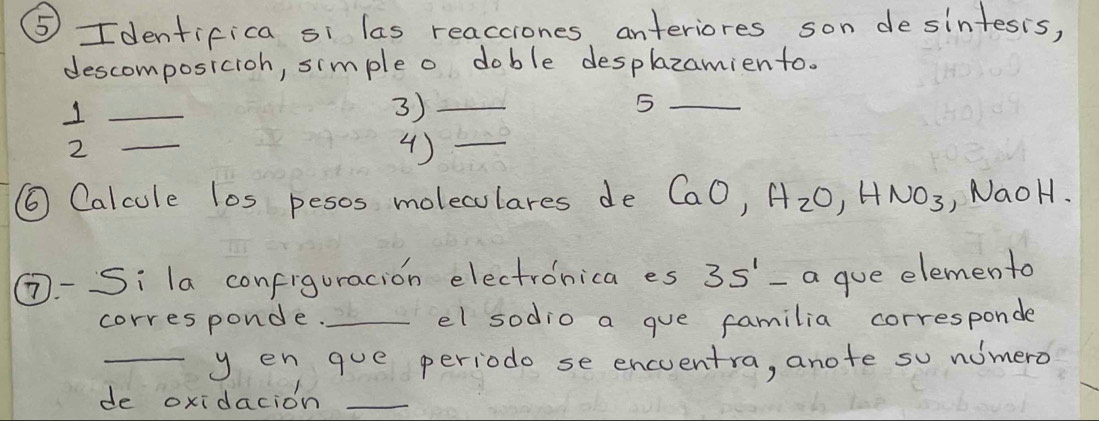 ⑤ Identifica si las reacciones anteriores son de síntesis,
descomposición, simple o doble desplazamiento.
1 ___ 3) ___ 5 ___
2 ___ 4) ___
⑥ Calcule los pesos moleculares de CaO, H₂O, HNO₃, NaOH.
⑦.- Si la configuración electrónica es 3S¹ - a que elemento
corresponde. ___ el sodio a que familia corresponde
___ y en que periodo se encuentra, anote su número
de oxidación ___